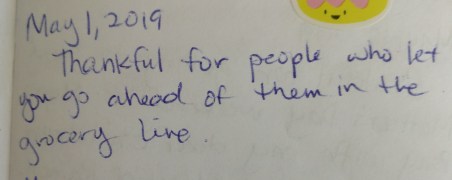 May 1, 2019
Thankful for people who let
you go ahead of them in the
grocery line.